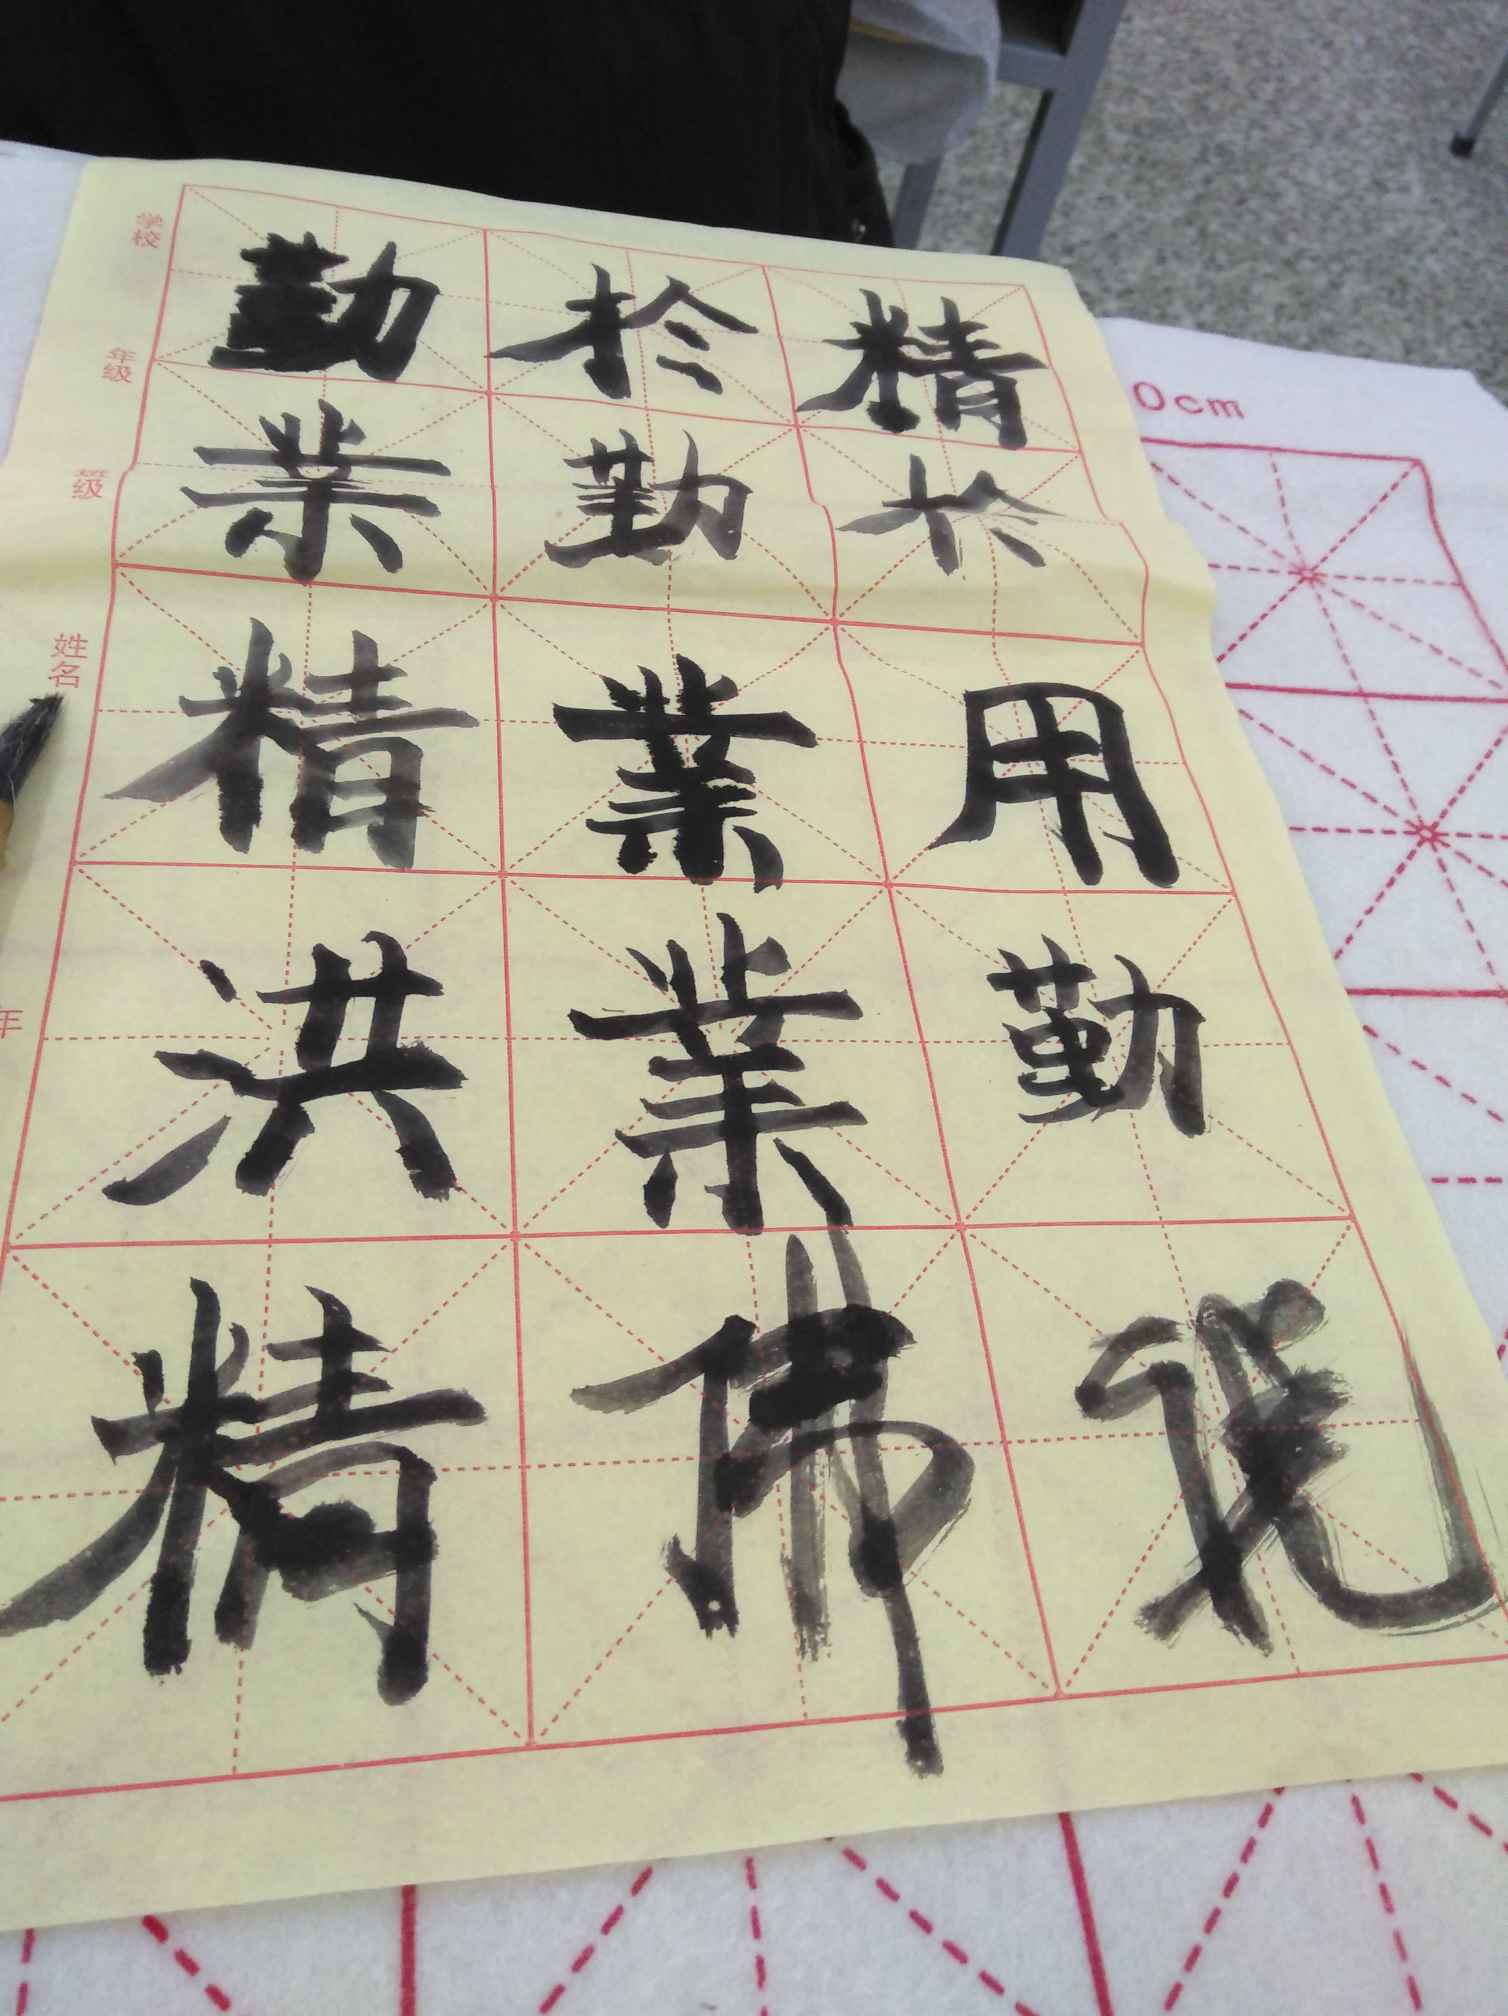 学校
年级
班级
姓名
年
勤於精
業勤於
精業用
洪業勤
精佛説
0cm